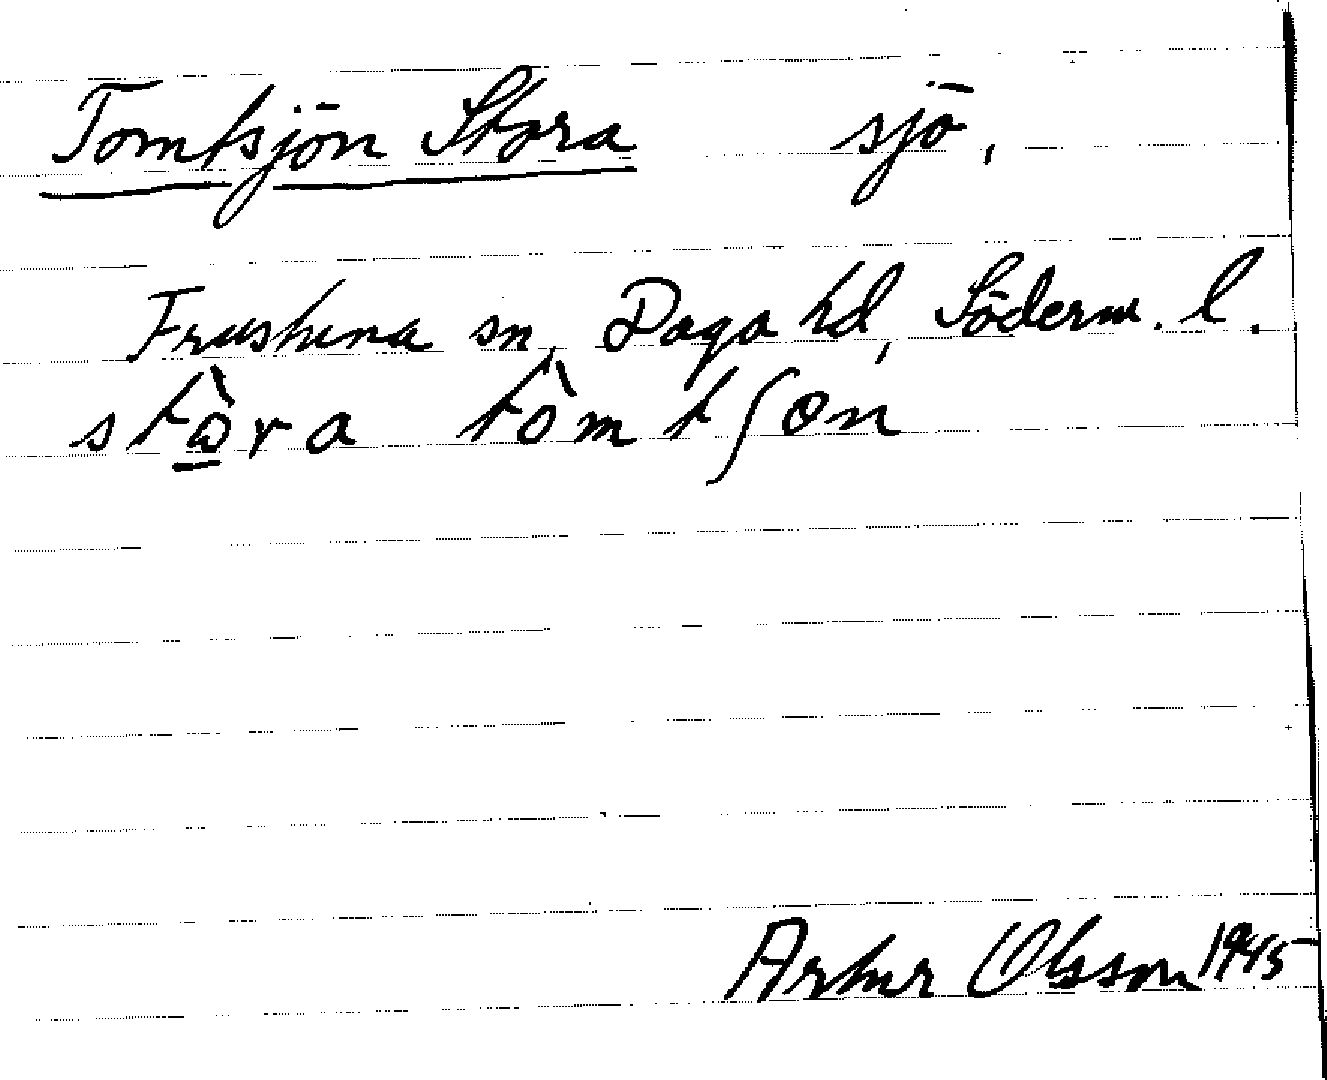 Tomtsjön Stora sjö,
Frustuna sn, Daga hd, Söderm. l.
stò̲ra tòmtʃøn
Artur Olsson 1945